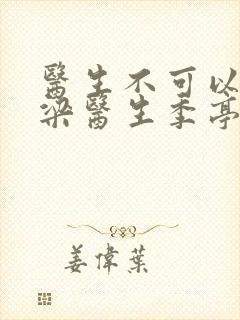 醫生不可以
梁醫生季亭
姜偉葉